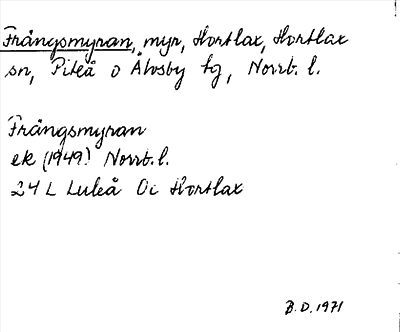 Frängsmyran, myr, Hortlax, Hortlax
sn, Piteå o Älvsby tg, Norrb. l.
Frängsmyran
ek (1949) Norrb. l.
24 L Luleå 0i Hortlax
B.D. 1971